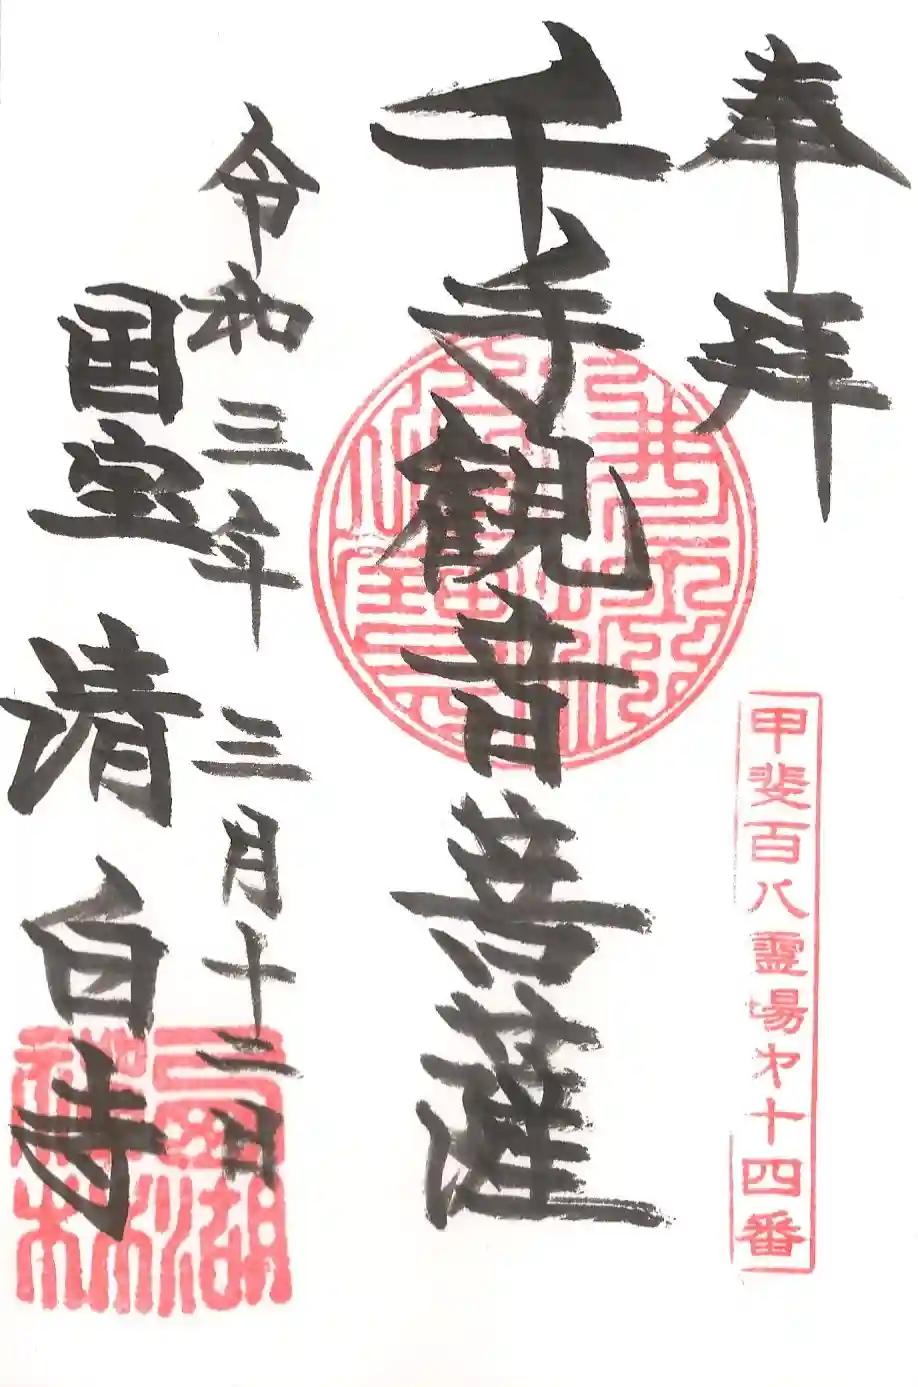 奉拝
甲斐百八霊場才十四番
千手観音菩薩
令和三年三月十二日
国宝 清白寺